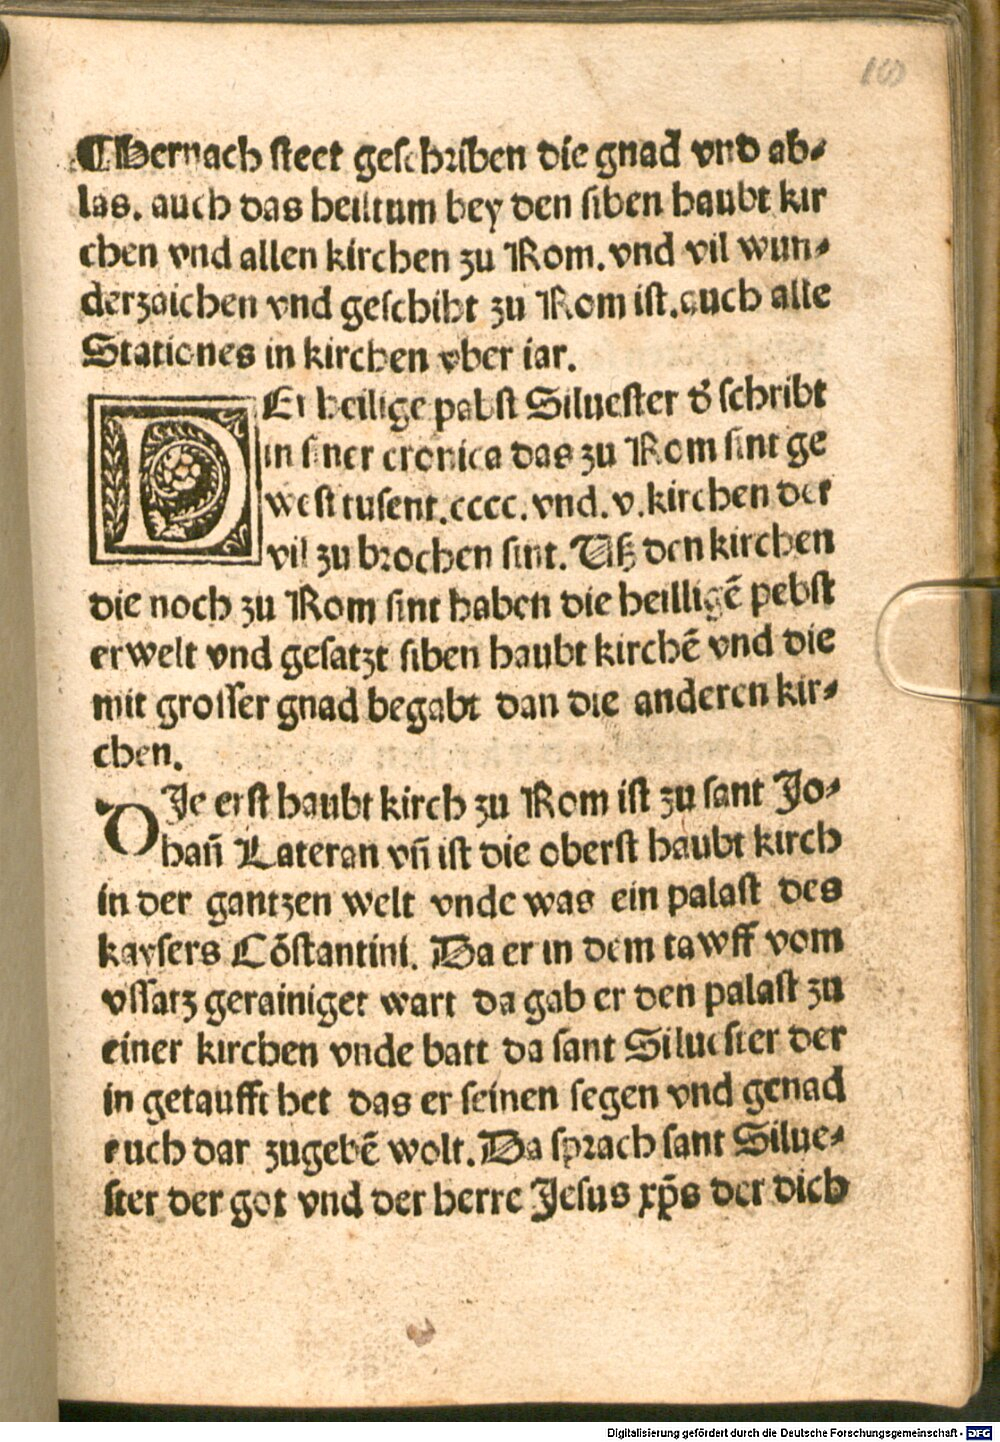 10
¶Hernach steet geschriben die gnad vnd ab⸗
las. auch das heiltum bey den siben haubt kir
chen vnd allen kirchen zu Rom. vnd vil wun⸗
derzaichen vnd geschiht zu Rom ist. auch alle
Stationes in kirchen vber iar.
DEr heilige pabst Siluester d̕ schribt
in siner cronica das zu Rom sint ge
west tusent. cccc. vnd. v. kirchen der
vil zu brochen sint. Uß den kirchen
die noch zu Rom sint haben die heilligē pebst
erwelt vnd gesatzt siben haubt kirchē vnd die
mit grosser gnad begabt dan die anderen kir⸗
chen.
DJe erst haubt kirch zu Rom ist zu sant Jo⸗
han̄ Lateran vn̄ ist die oberst haubt kirch
in der gantzen welt vnde was ein palast des
kaysers Cōstantini. Da er in dem tawff vom
vssatz gerainiget wart da gab er den palast zu
einer kirchen vnde batt da sant Siluester der
in getaufft het das er seinen segen vnd genad
euch dar zugebē wolt. Da sprach sant Silue⸗
ster der got vnd der herre Jesus xp̄s der dich
Digitalisierung gefördert durch die Deutsche Forschungsgemeinschaft - DFG